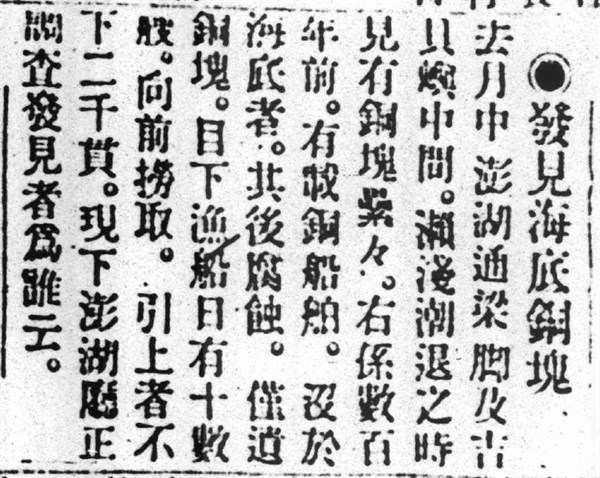 ◉發見海底銅塊
去月中 澎湖通梁脚及吉
貝嶼中間。瀨淺潮退之時
見有銅塊累々。右係數百
年前。有載銅船舶。沒於
海底者。其後腐蝕。僅遺
銅塊。目下漁船日有十數
艘。向前撈取。引上者不
下二千貫。現下澎湖廳正
調查發見者爲誰云。